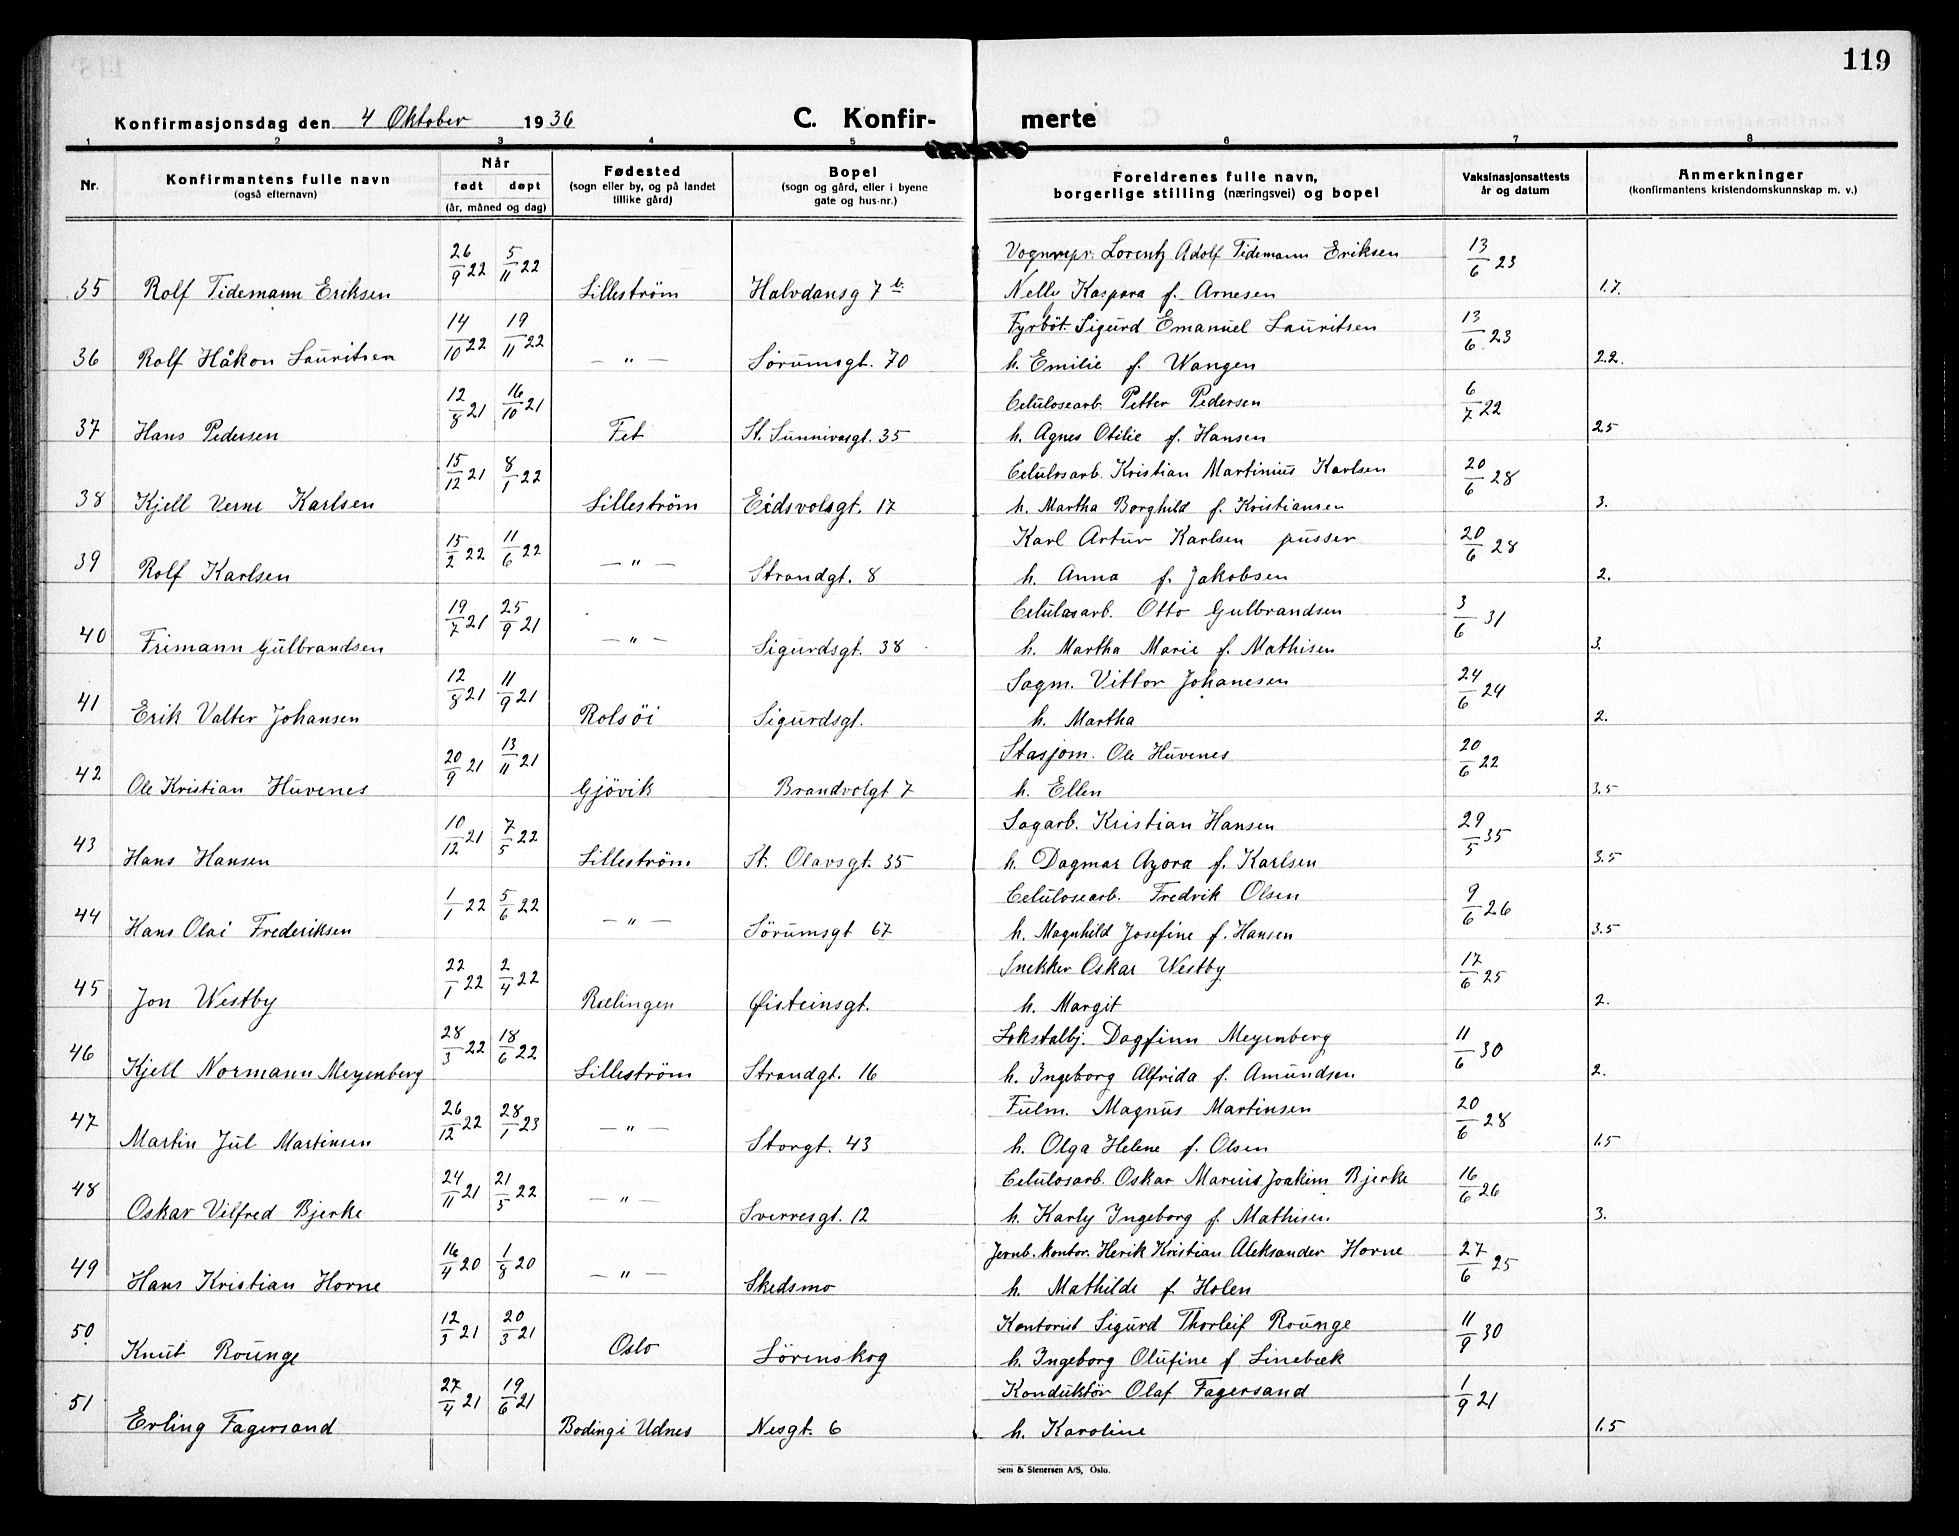 119
Konfirmasjonsdag den 4 Oktober 1936 C. Konfirmerte
1 2 3 4 5 6 7 8
Nr. Konfirmantens fulle navn (også efternavn) Når født døpt (år, måned og dag) Fødested (sogn eller by, og på landet tillike gård) Bopel (sogn og gård, eller i byene gate og hus-nr.) Foreldrenes fulle navn, borgerlige stilling (næringsvei) og bopel Vaksinasjonsattests år og datum Anmerkninger (konfirmantens kristendomskunnskap m. v.)
26/9 22 5/11 22 Vognmpr. Lorentz Adolf Tidemann Eriksen 13/6 23
35 Rolf Tidemann Eriksen Lilleström Halvdansg 7 b. Nelly Kaspara f. Arnesen 1.7.
14/10 22 19/11 22 Fyrböt. Sigurd Emanuel Lauritsen 13/6 23
36 Rolf Håkon Lauritsen — " — Sörumsgt. 70 h. Emilie f. Wangen 2.2.
12/8 21 16/10 21 Celulosearb. Petter Pedersen 6/7 22
37 Hans Pedersen Fet St. Sunnivasgt. 35 h. Agnes Otilie f. Hansen 2.5
15/12 21 8/1 22 Celulosarb. Kristian Martinius Karlsen 20/6 28
38 Kjell Verne Karlsen Lilleström Eidsvolsgt. 17 h. Martha Borghild f. Kristiansen 3.
15/2 22 11/6 22 Karl Artur Karlsen pusser 20/6 28
39 Rolf Karlsen — " — Strandgt. 8 h. Anna f. Jakobsen 2.
19/7 21 25/9 21 Celulosarb. Otto Gulbrandsen 3/6 31
40 Frimann Gülbrandsen — " — Sigurdsgt. 38 h. Martha Marie f. Mathisen 3.
12/8 21 11/9 21 Sagm. Viktor Johanesen 24/6 24
41 Erik Valter Johansen Rolsöi Sigurdsgt. h. Martha 2.
20/9 21 13/11 21 Stasjom. Ole Huvenes 20/6 22
42 Ole Kristian Huvenes Gjövik Brandvolgt 7 h. Ellen 3.5
10/12 21 7/5 22 Sagarb. Kristian Hansen 29/5 35
43 Hans Hansen Lilleström St. Olavsgt. 35 h. Dagmar Azora f. Karlsen 3.5
1/1 22 5/6 22 Celulosearb. Fredrik Olsen 9/6 26
44 Hans Olai Frederiksen — " — Sörumsgt 67 h. Magnhild Josefine f. Hansen 3.5
22/1 22 2/4 22 Snekker Oskar Westby 17/6 25
45 Jon Westby Rælingen Øisteinsgt. h. Margit 2.
28/3 22 18/6 22 Lokstalbj. Dagfinn Meyenberg 11/6 30
46 Kjell Normann Meyenberg Lilleström Strandgt. 16 h. Ingeborg Alfrida f. Amundsen 2.
26/12 22 28/1 23 Fulm. Magnus Martinsen 20/6 28
47 Martin Jul Martinsen — " — Storgt. 43 h. Olga Helene f. Olsen 1.5
24/11 21 21/5 22 Celulosarb. Oskar Marius Joakim Bjerke 16/6 26
48 Oskar Vilfred Bjerke — " — Sverresgt. 12 h. Karly Ingeborg f. Mathisen 3.
16/4 20 1/8 20 Jernb. kontor. Herik Kristian Aleksander Horne 27/6 25
49 Hans Kristian Horne — " — Skedsmo h. Mathilde f. Holen
12/3 21 20/3 21 Kontorist Sigurd Thorleif Rounge 11/9 30
50 Knut Rounge Oslo Lörenskog h. Ingeborg Olufine f Linebæk
27/4 21 19/6 21 Konduktör Olaf Fagersand 1/9 21
51 Erling Fagersand Boding i Udnes Nesgt. 6 h. Karoline 1.5
Sem & Stenersen A/S, Oslo.